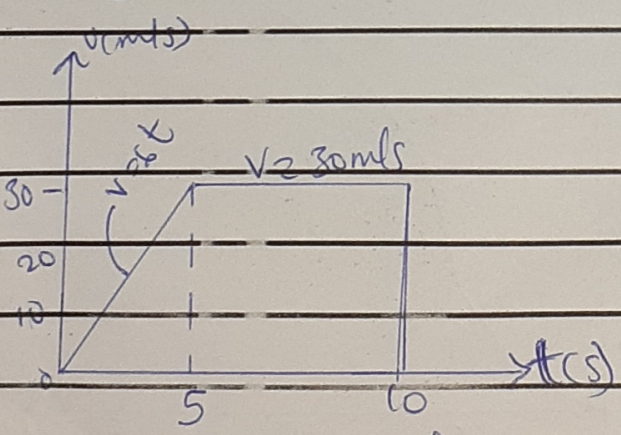 v(m/s)
v=6t
V=30m/s
30
20
10
0
5
10
t(s)